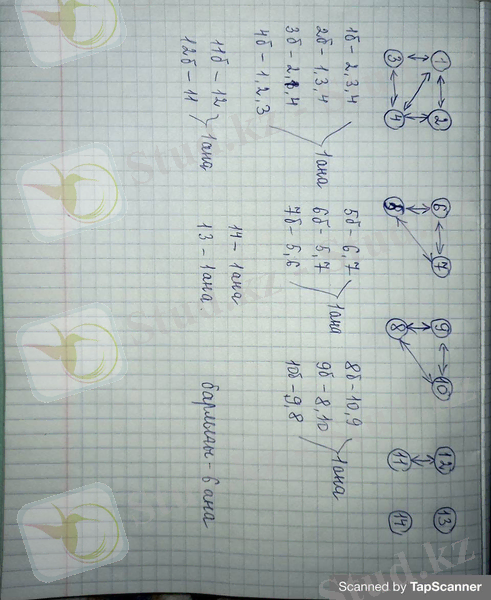 1 2 6 7 9 10 12 13
3 4 5 8 11 14
1б - 2,3,4
2б - 1,3,4
3б - 2,1,4
4б - 1,2,3
1ана
5б - 6,7
6б - 5,7
7б - 5,6
1ана
8б - 10,9
9б - 8,10
10б - 9,8
1ана
11б - 12
12б - 11
1ана
14 - 1ана
13 - 1ана.
барлығы - 6 ана
Stud.kz
Stud.kz
Stud.kz
Scanned by TapScanner